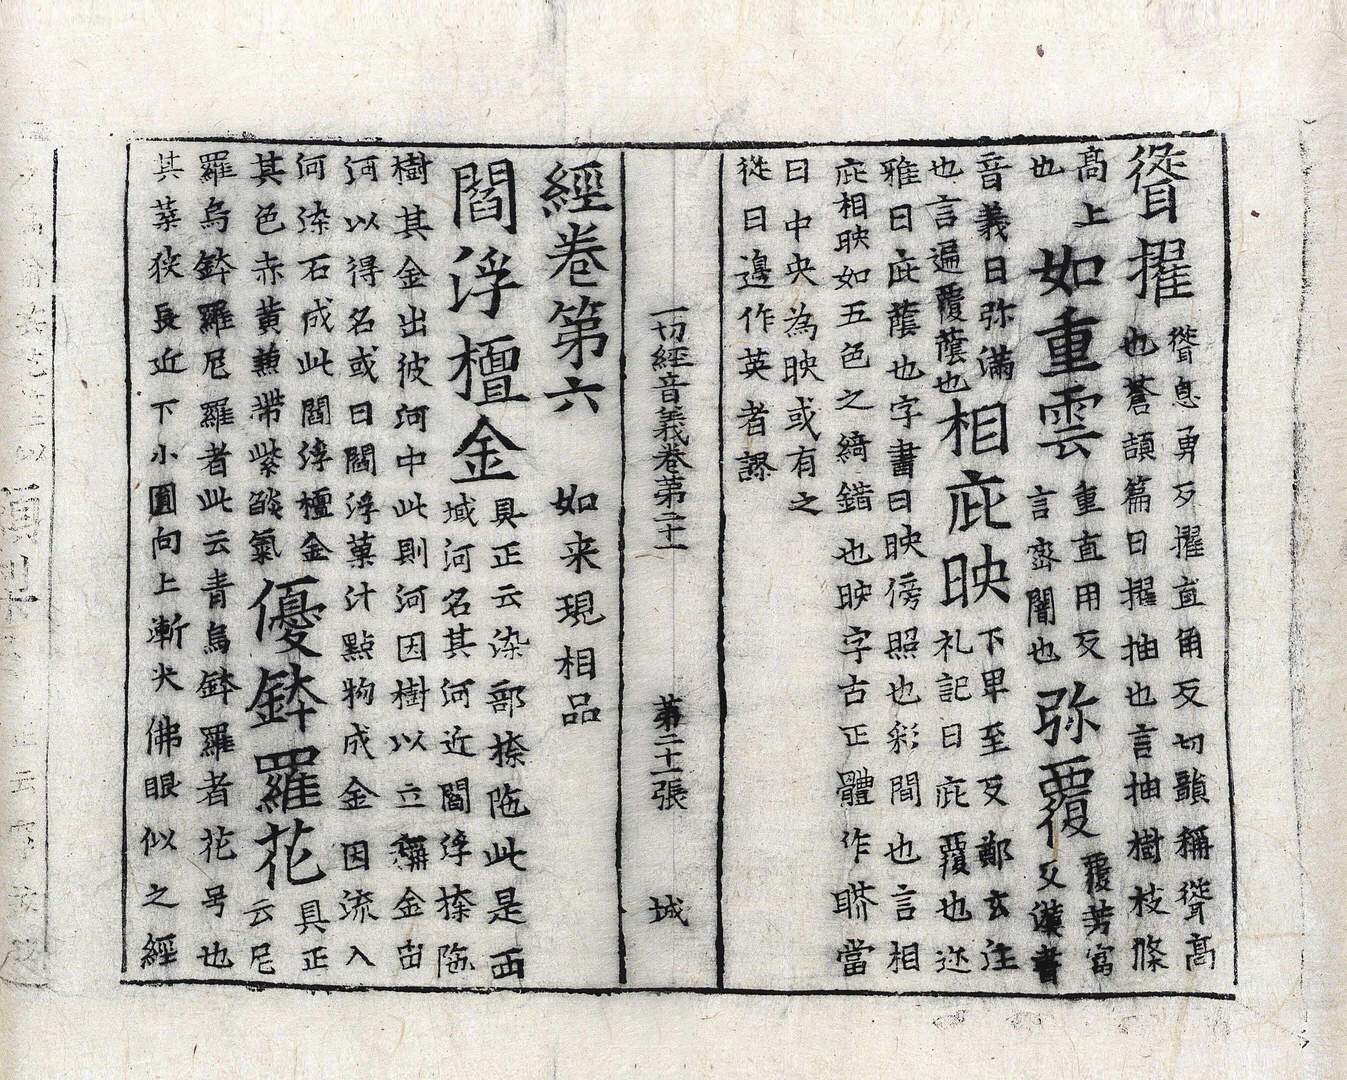 聳擢
聳息勇反擢直角反切韻稱聳高
也蒼頡篇曰擢抽也言抽樹枝條
高上
也
如重雲
重直用反
言密闇也
弥覆
覆芳富
反漢書
音義曰弥滿
也言遍覆蔭也
相庇映
下卑至反鄭玄注
礼記曰庇覆也迩
雅曰庇蔭也字書曰映傍照也彩間也言相
庇相映如五色之綺錯也映字古正體作當
曰中央為映或有之
從日邊作英者謬
一切經音義卷第二十一 第二十一張 城
經卷第六 如来現相品
閻浮檀金
具正云染部捺陁此是西
域河名其河近閻浮捺陁
樹其金出彼河中此則河因樹以立稱金由
河以得名或曰閻浮菓汁點物成金因流入
河染石成此閻浮檀金
其色赤黄兼帶紫燄氣
優鉢羅花
具正
云尼
羅烏鉢羅尼羅者此云青烏鉢羅者花号也
其葉狭長近下小圓向上漸尖佛眼似之經